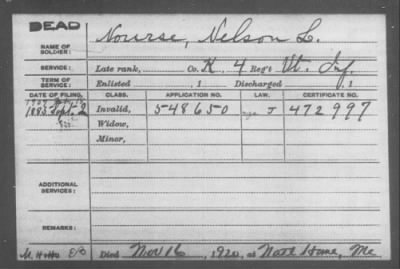 DEAD
NAME OF SOLDIER: Nourse, Nelson L.
SERVICE: Late rank, Co. K, 4 Reg't Vt. Inf.
TERM OF SERVICE: Enlisted 1 Discharged 1
DATE OF FILING. CLASS. APPLICATION NO. LAW. CERTIFICATE NO.
1885 Sept. 2 Invalid, 548650 J 472997
Widow,
Minor,
ADDITIONAL SERVICES:
REMARKS:
Died Nov 16, 1920, at Natl Home, Me